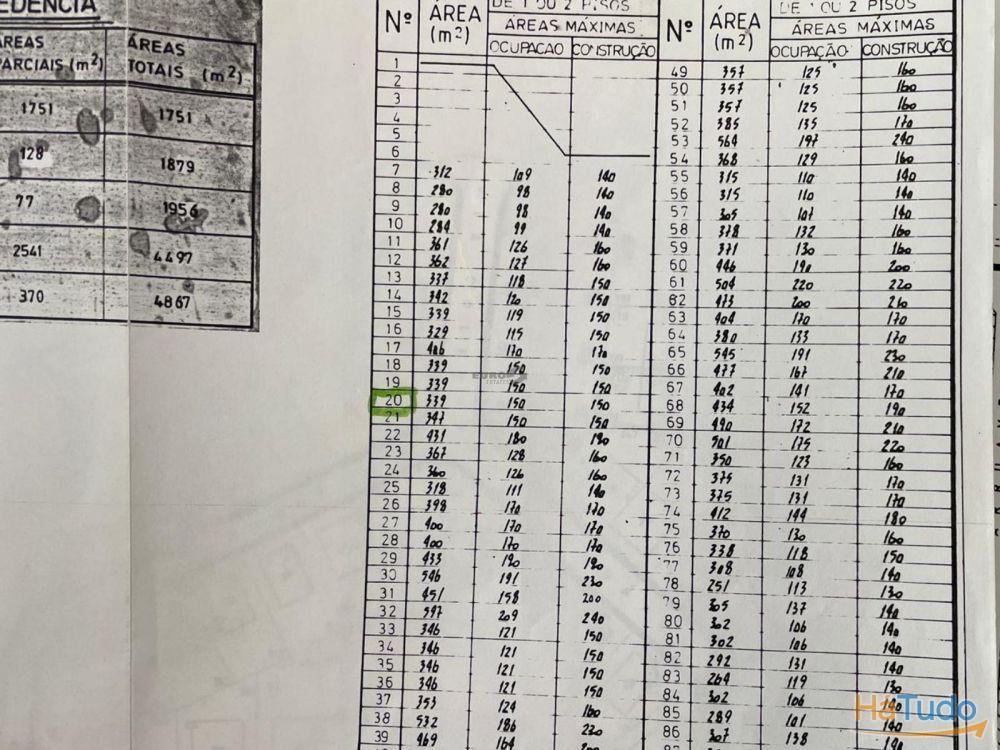 EDÊNCIA
REAS ÁREAS
PARCIAIS (m²) TOTAIS (m²)
1751 1751
128 1879
77 1956
2541 4497
370 4867
DE 1 OU 2 PISOS
Nº ÁREA (m²) ÁREAS MÁXIMAS
OCUPACAO CONSTRUÇÃO
1
2
3
4
5
6
7 312 109 140
8 280 98 140
9 280 98 140
10 284 99 140
11 361 126 160
12 362 127 160
13 337 118 150
14 342 120 150
15 339 119 150
16 329 115 150
17 406 170 170
18 339 150 150
19 339 150 150
20 339 150 150
21 347 150 150
22 431 180 190
23 367 128 160
24 360 126 160
25 318 111 140
26 398 170 170
27 400 170 170
28 400 170 170
29 433 190 190
30 546 191 230
31 451 158 200
32 597 209 240
33 346 121 150
34 346 121 150
35 346 121 150
36 346 121 150
37 353 124 160
38 532 186 230
39 469 164 200
DE 1 OU 2 PISOS
Nº ÁREA (m²) ÁREAS MÁXIMAS
OCUPAÇÃO CONSTRUÇÃO
49 357 125 160
50 357 125 160
51 357 125 160
52 385 135 170
53 564 197 240
54 368 129 160
55 315 110 140
56 315 110 140
57 305 107 140
58 378 132 160
59 371 130 160
60 446 190 200
61 504 220 220
62 473 200 210
63 404 170 170
64 380 133 170
65 545 191 230
66 477 167 210
67 402 141 170
68 434 152 190
69 490 172 210
70 501 175 220
71 350 123 160
72 375 131 170
73 375 131 170
74 412 144 180
75 370 130 160
76 338 118 150
77 308 108 140
78 251 113 130
79 305 137 140
80 302 106 140
81 302 106 140
82 292 131 140
83 264 119 130
84 302 106 140
85 289 101 140
86 307 138 140
87
HáTudo